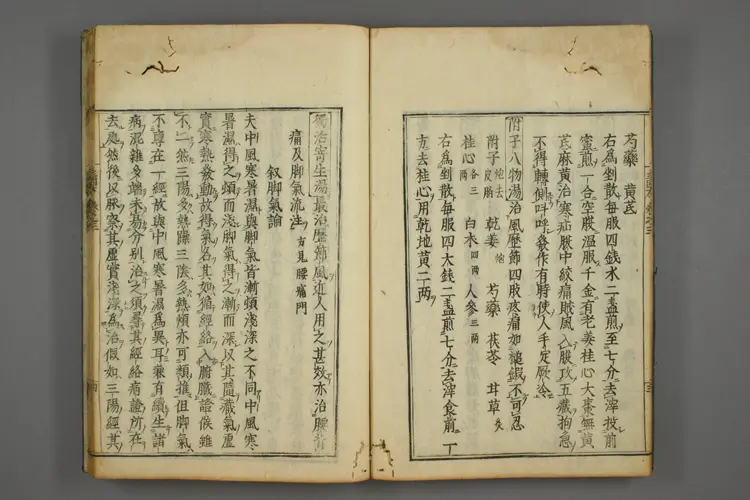 芍藥 黄芪
右為剉散每服四錢水二盞煎至七分去滓投前
蜜煎一合空腹溫服千金有老姜桂心大棗無黄
芪麻黄治寒疝腹中絞痛賊風入腹攻五藏拘急
不得轉側叫呼發作有時使人手足厥冷
附子八物湯治風歷節四肢疼痛如槌鍛不可忍
附子炮去皮臍 乾姜炮 芍藥 茯苓 甘草炙
桂心各三兩 白朮四兩 人參三兩
右為剉散每服四大錢二盞煎七分去滓食前一
方去桂心用乾地黄二兩
獨活寄生湯最治歷節風近人用之甚效亦治腰背
痛及脚氣流注方見腰痛門
叙脚氣論
夫中風寒暑濕與脚氣皆漸頓淺深之不同中風寒
暑濕得之頓而淺脚氣得之漸而深以其隨藏氣虚
實寒熱發動故得氣名其如循經絡入腑臟證候雖
不一然三陽多熱躁三陰多熱煩亦可類推但脚氣
不專在一經故與中風寒暑濕為異耳兼有續生諸
病混雜多端未易分別治之須尋其經絡病證所在
去處然後以脉察其虚實淺深為治假如三陽經其